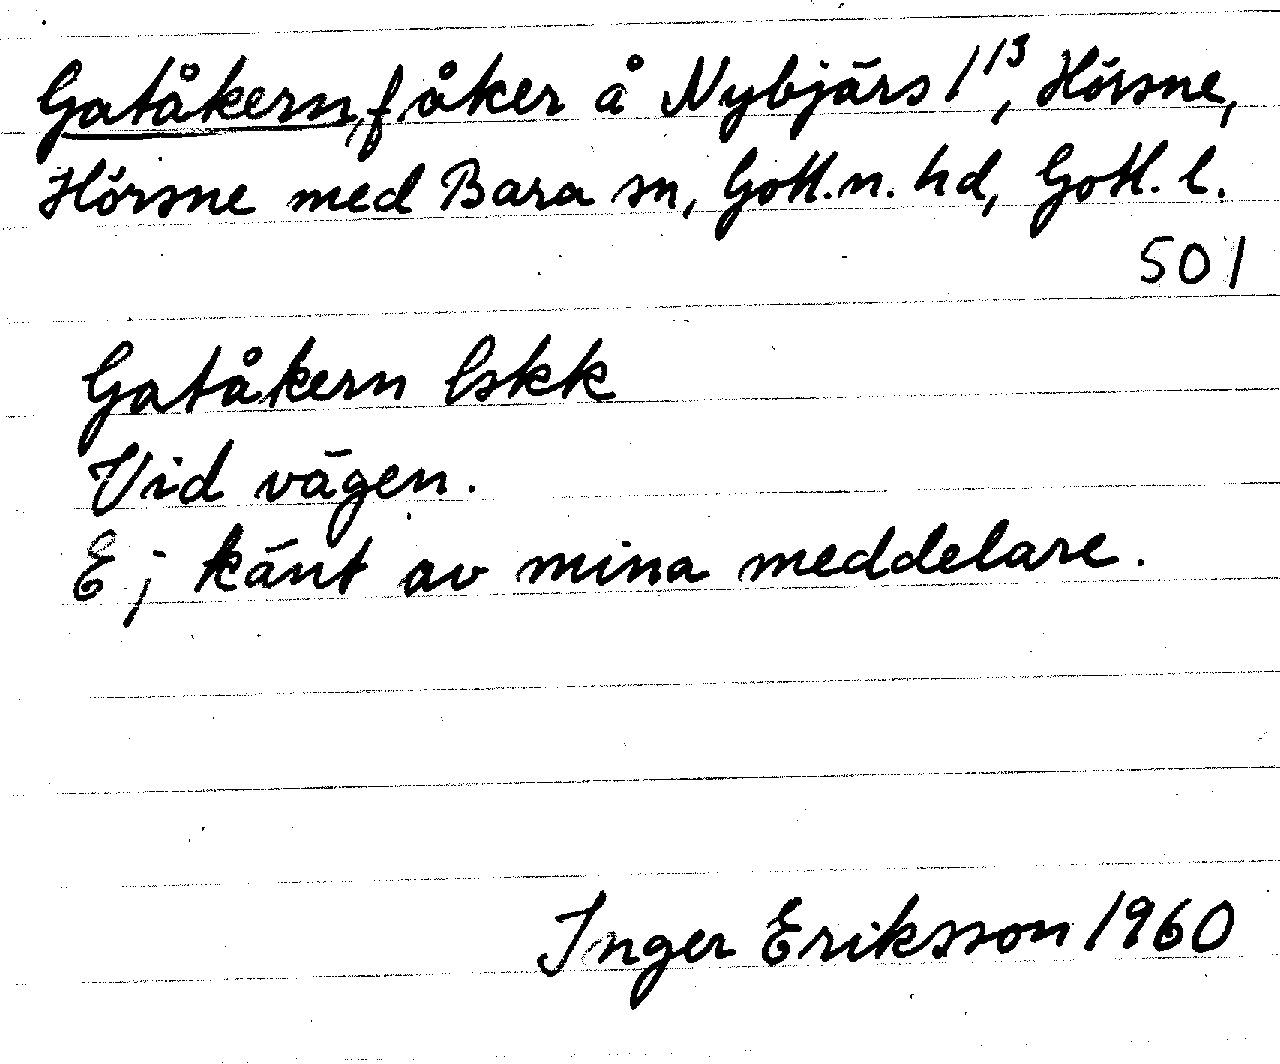 Gatåkern, f åker å Nybjärs 1¹³, Hörsne,
Hörsne med Bara sn, Gotl. n. hd, Gotl. l.
501
Gatåkern lskk
Vid vägen.
Ej känt av mina meddelare.
Inger Eriksson 1960